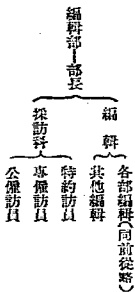 編輯部—部長
編輯
各部編輯(同前從略)
其他編輯
採訪科
特約訪員
專僱訪員
公僱訪員